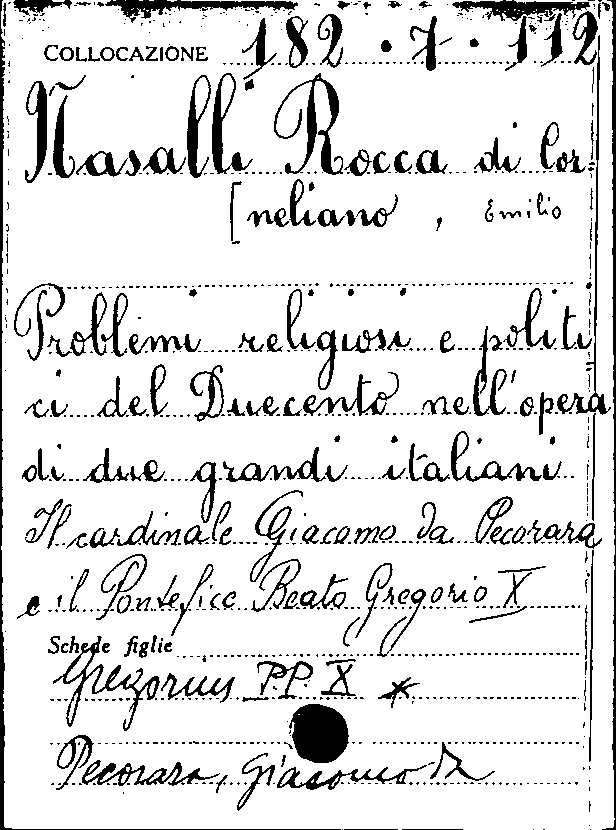 COLLOCAZIONE 182.7.112
Nasalli Rocca di Cor-
[neliano, Emilio
Problemi religiosi e politi
ci del Duecento nell'opera
di due grandi italiani
Il cardinale Giacomo da Pecorara
e il Pontefice Beato Gregorio X
Schede figlie
Gregorius P.P. X *
Pecorara, Giacomo da